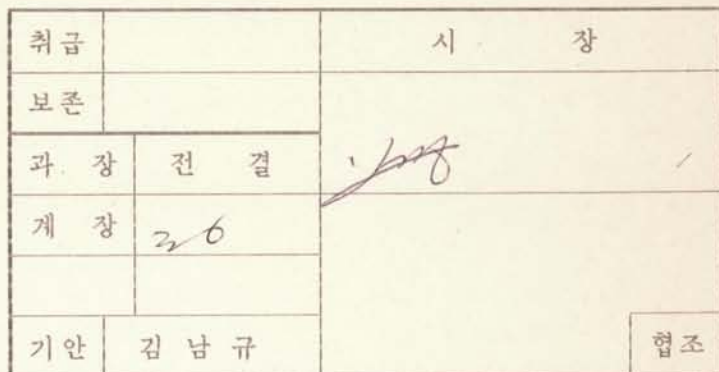 취급 시 장
보존
과 장 전 결
계 장
기안 김남규 협조